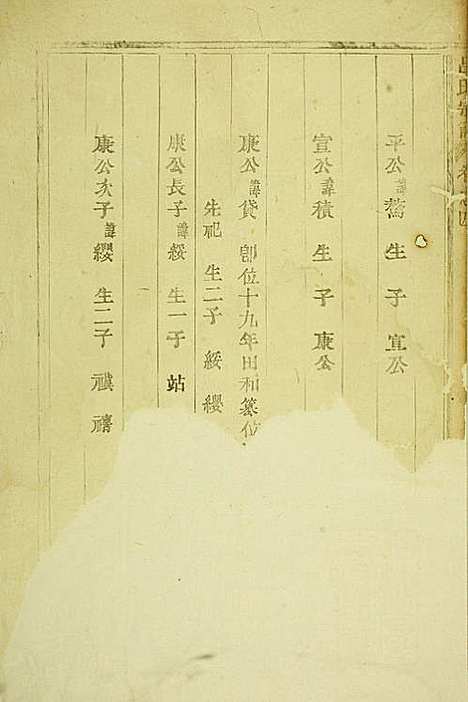 平公諱驁生子宣公
宣公諱積生子康公
康公諱貸卽位十九年田和篡位
先祀生二子綏纓
康公長子諱綏生一子站
康公次子諱纓生二子禛禧